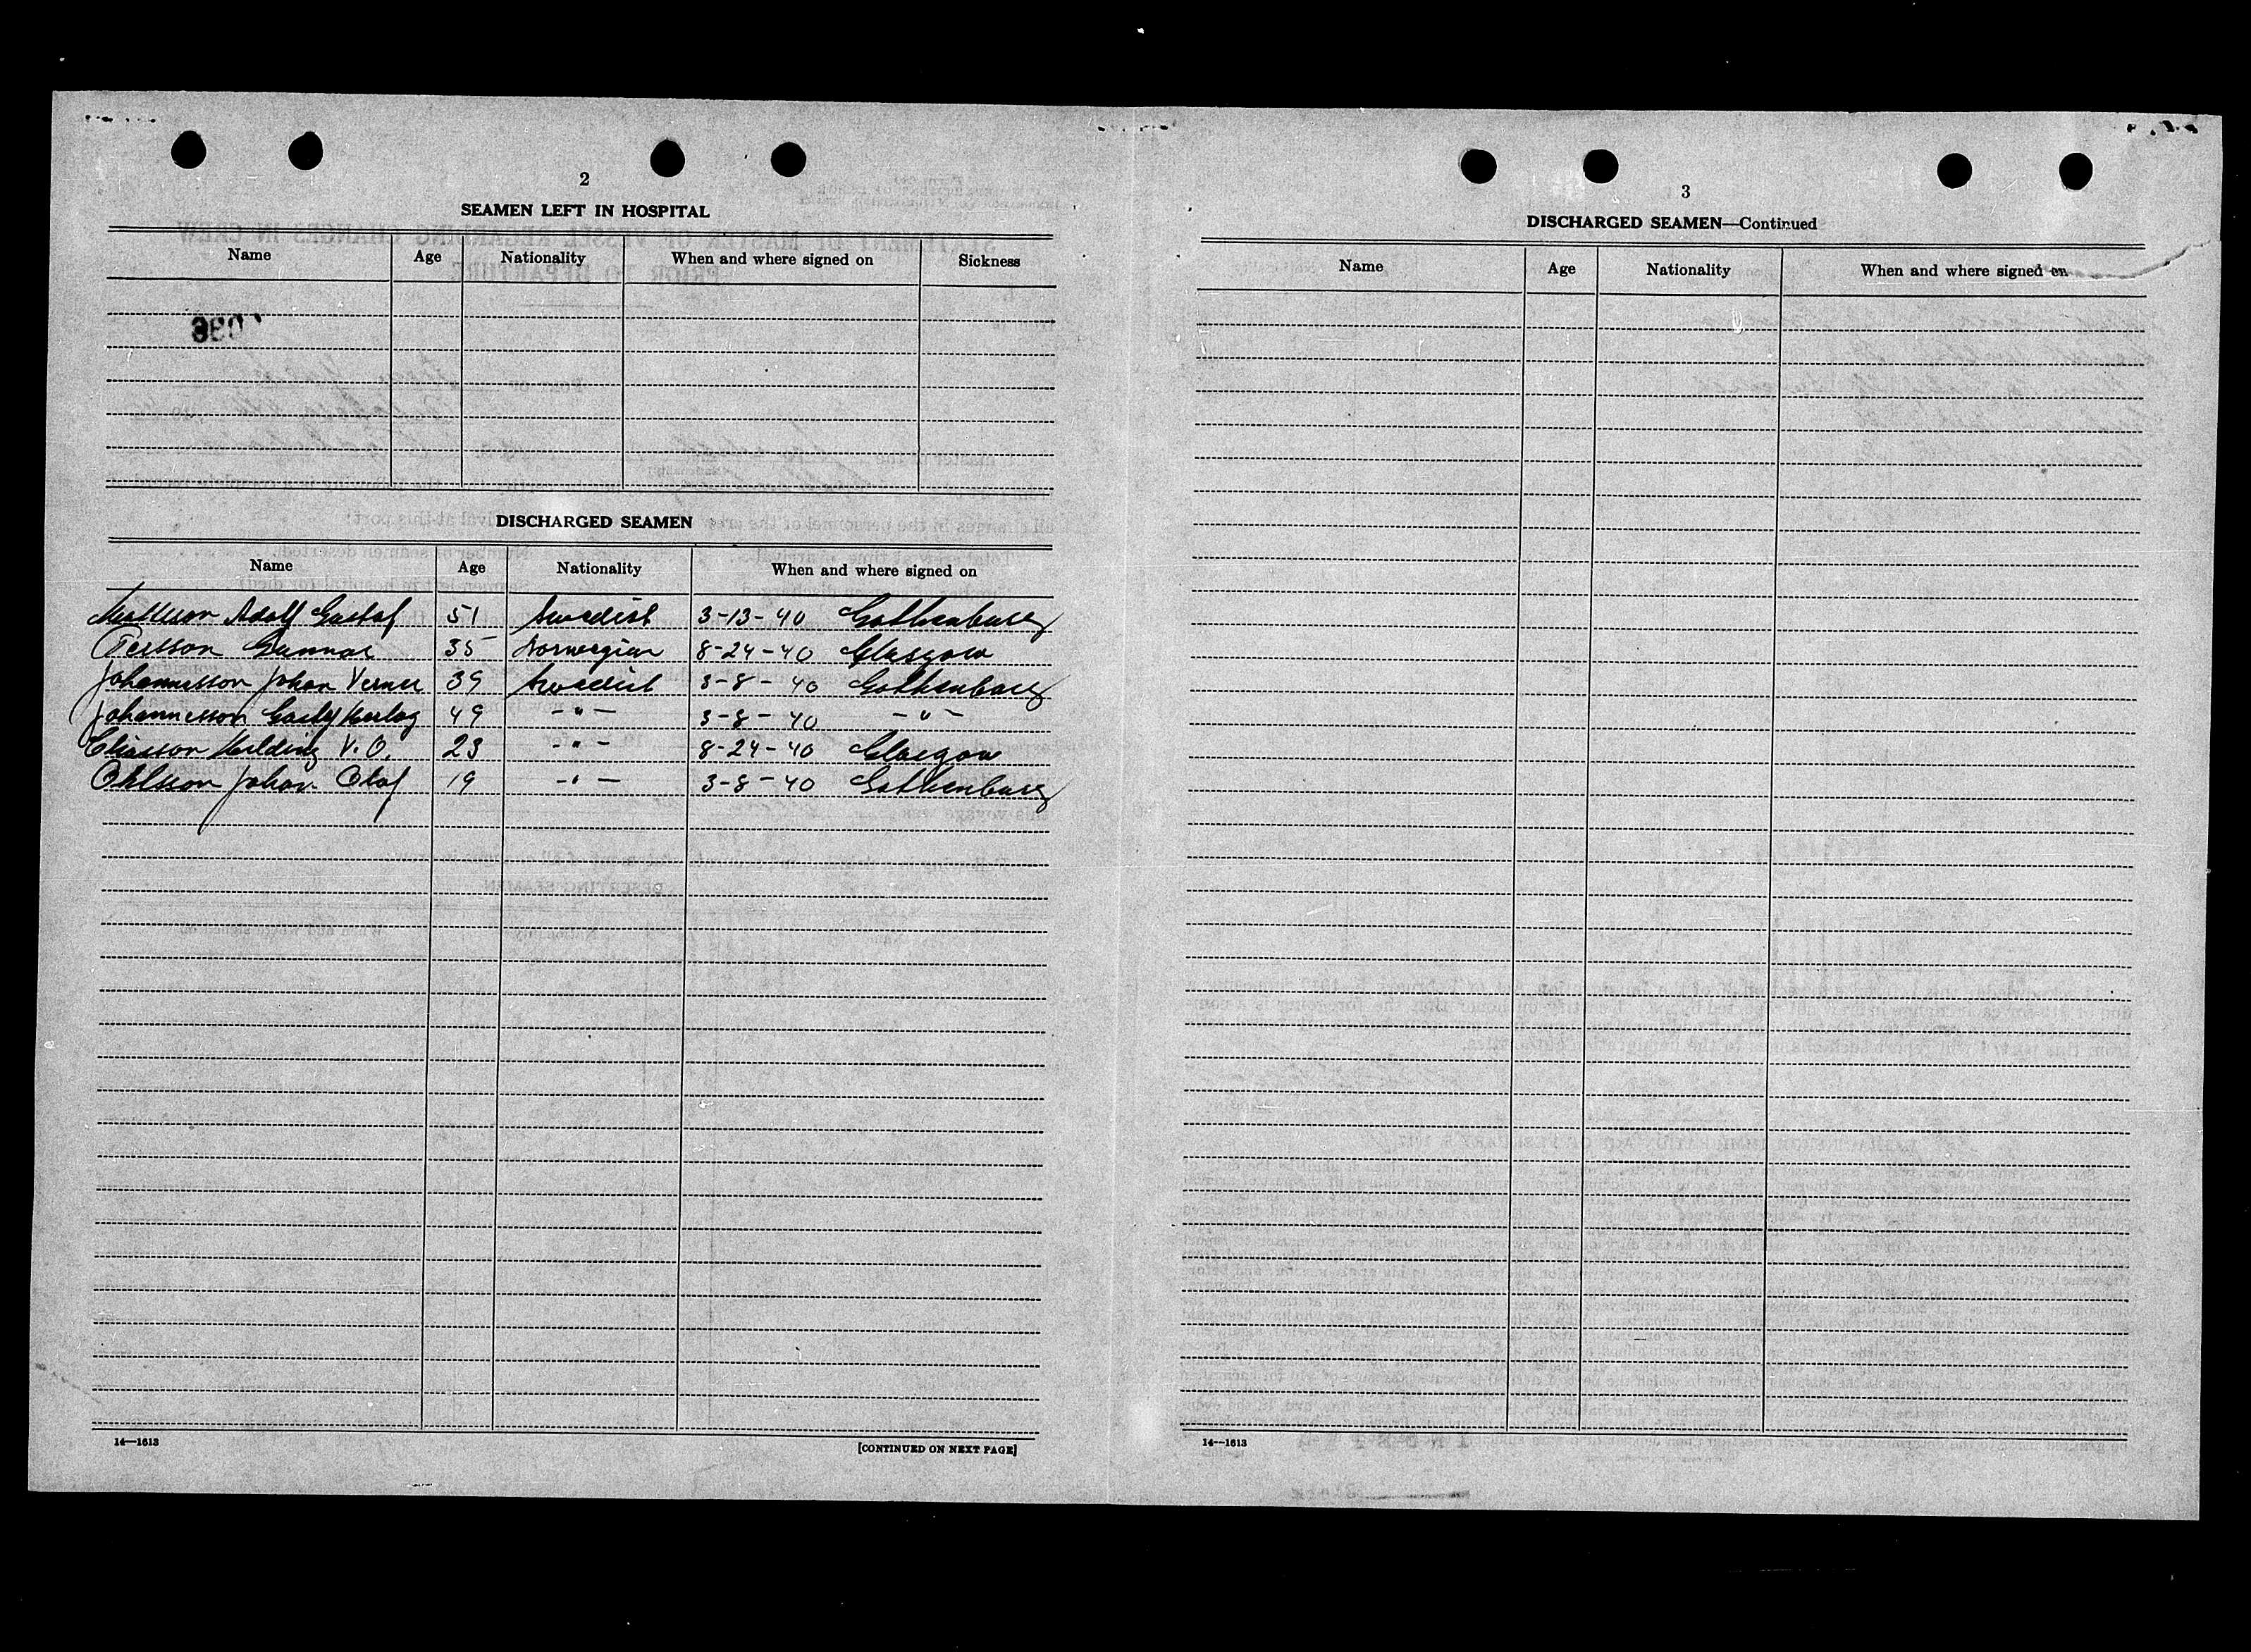 2
SEAMEN LEFT IN HOSPITAL
Name Age Nationality When and where signed on Sickness
DISCHARGED SEAMEN
Name Age Nationality When and where signed on
Adolf Gustaf 51 Swedish 3-13-40 Gothenburg
Persson Gunnar 35 Norwegian 8-24-40 Glasgow
Johannesson Johan Verner 39 Swedish 3-8-40 Gothenburg
Johannesson 49 -"- 3-8-40 -"-
Eliasson Helding V. O. 23 -"- 8-24-40 Glasgow
Ohlsson Johan Olof 19 -"- 3-8-40 Gothenburg
14—1613
[CONTINUED ON NEXT PAGE]
3
DISCHARGED SEAMEN—Continued
Name Age Nationality When and where signed on
14—1613